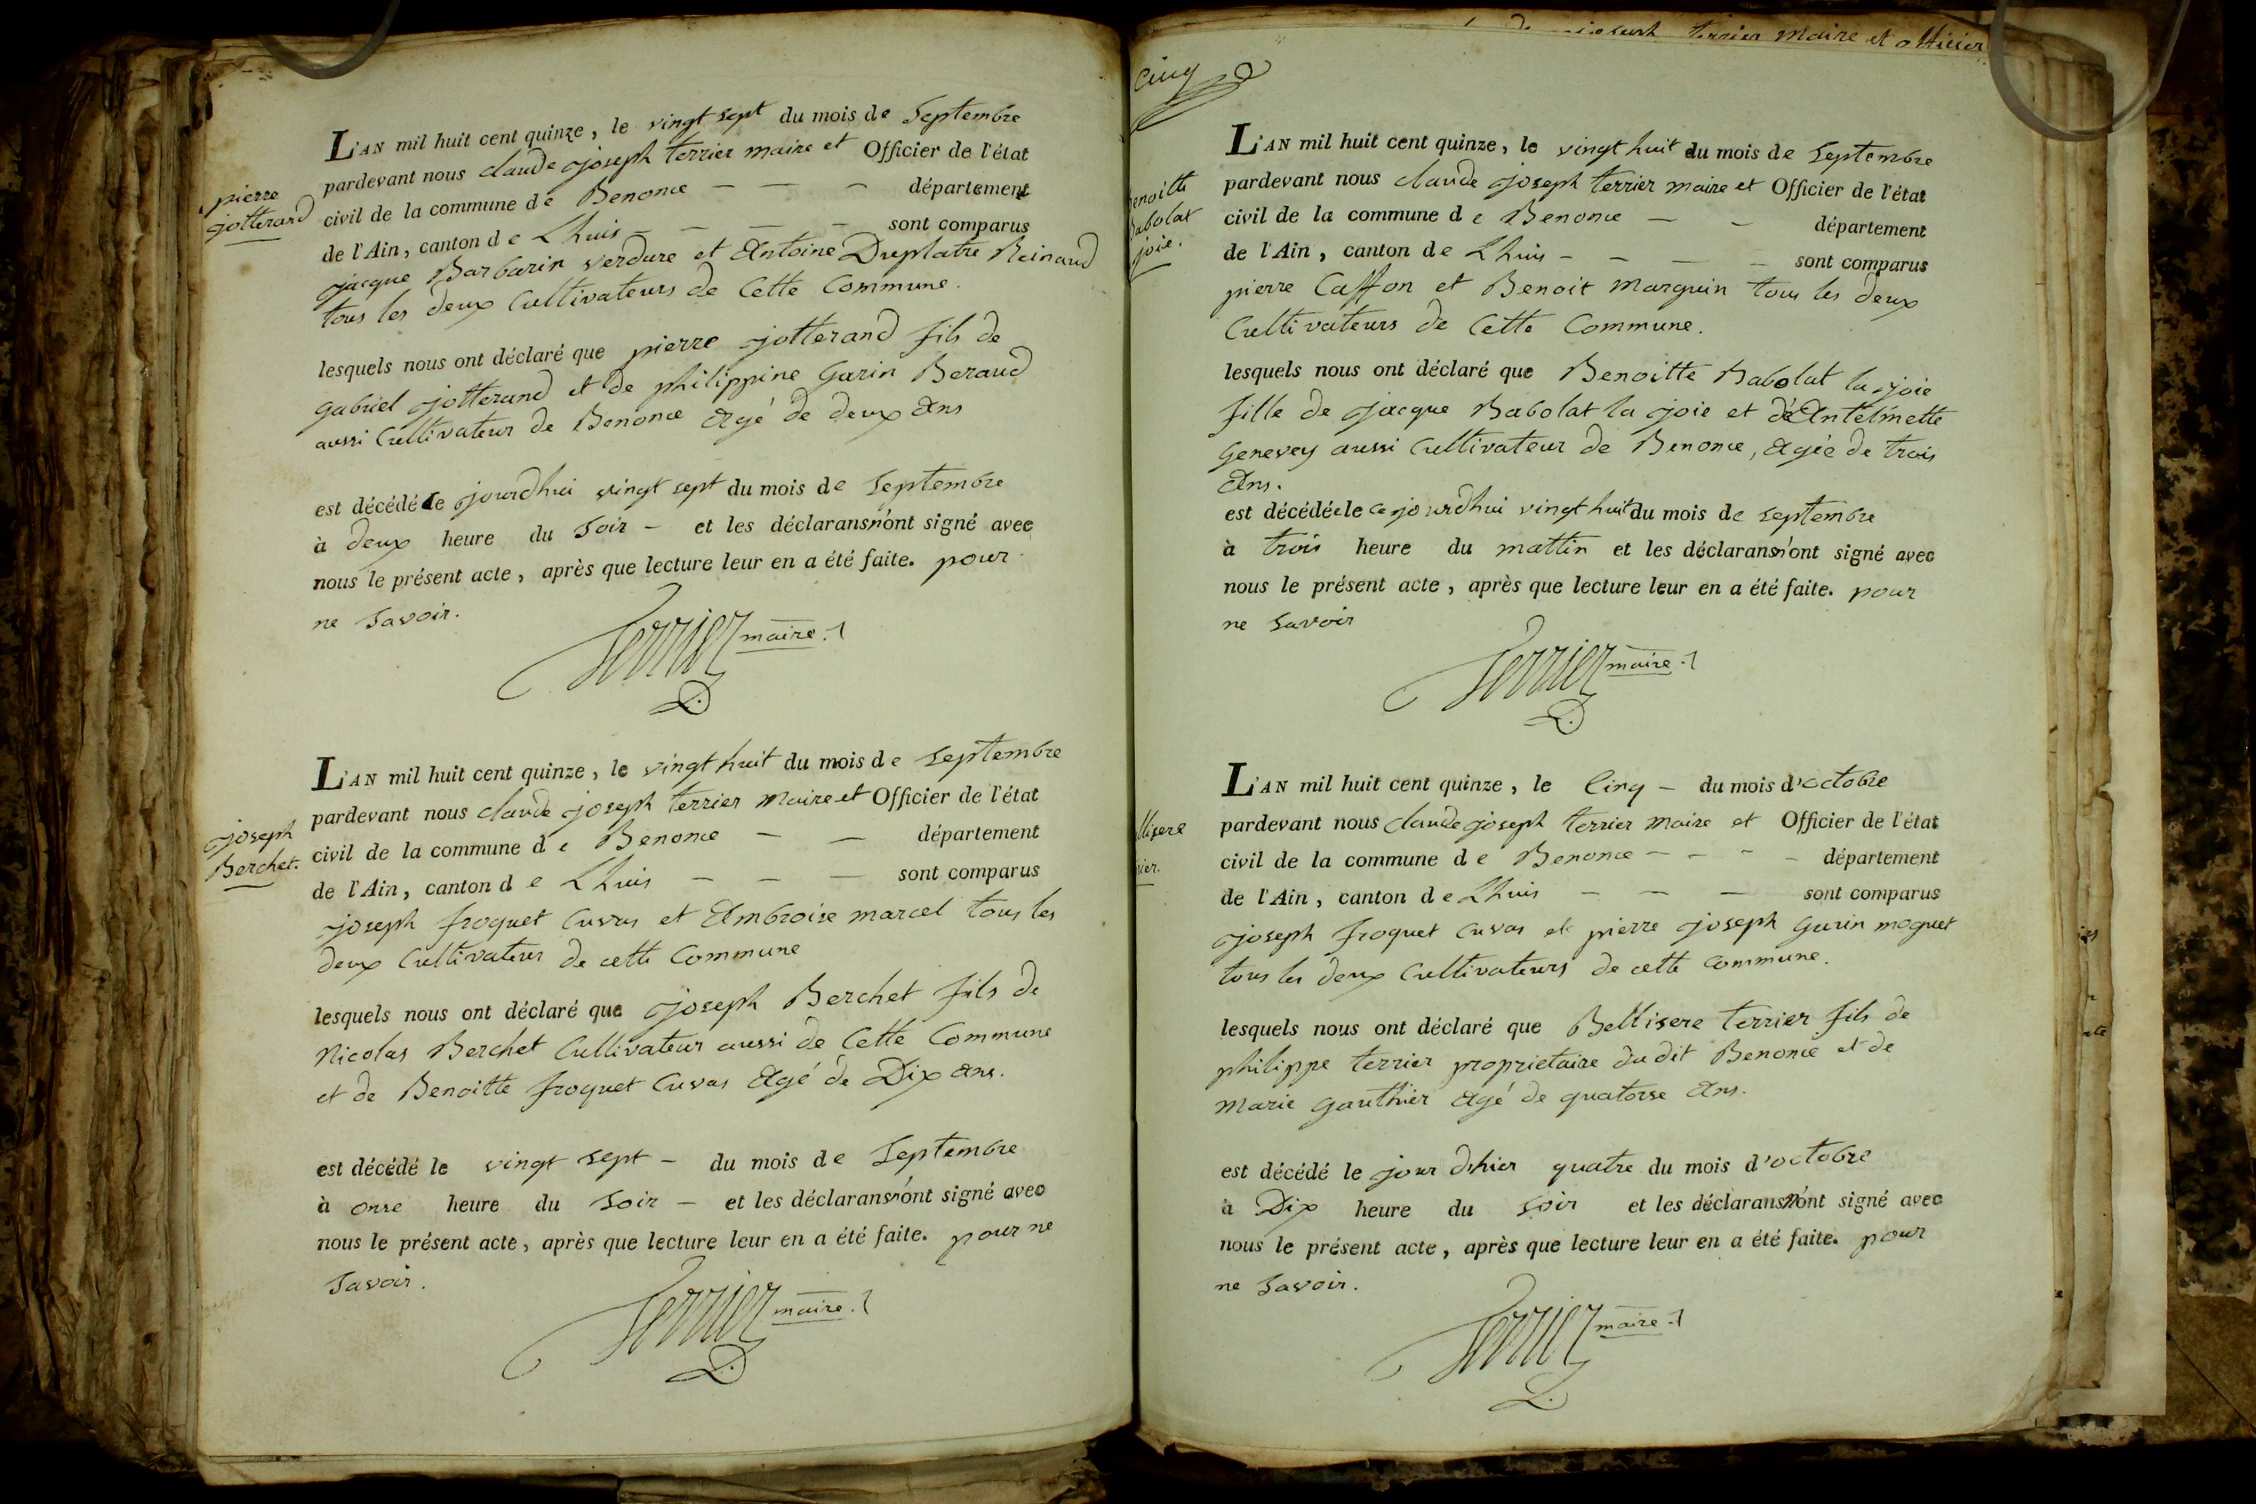 L'AN mil huit cent quinze, le vingt sept du mois de Septembre
pardevant nous claude joseph terrier maire et Officier de l'état
civil de la commune de Benonce — — — département
de l'Ain, canton de Lhuis — — — — sont comparus
jacque Barbarin verdure et Antoine Duplatre Reinaud
tous les deux Cultivateurs de Cette Commune.
pierre
jotterand
lesquels nous ont déclaré que pierre jotterand fils de
gabriel jotterand et de philippine Garin Beraud
aussi Cultivateur de Benonce Agé de deux Ans
est décédé le jourdhui vingt sept du mois de Septembre
à deux heure du Soir — et les déclarans n'ont signé avec
nous le présent acte, après que lecture leur en a été faite. pour
ne Savoir.
Terrier maire.
L'AN mil huit cent quinze, le vingt huit du mois de Septembre
pardevant nous claude joseph terrier Maire et Officier de l'état
civil de la commune de Benonce — — département
de l'Ain, canton de Lhuis — — — sont comparus
joseph froquet Cuvas et Ambroise marcel tous les
deux Cultivateur de cette Commune
joseph
Berchet.
lesquels nous ont déclaré que joseph Berchet fils de
Nicolas Berchet Cultivateur aussi de Cette Commune
et de Benoitte froquet Cuvas Agé de Dix Ans.
est décédé le vingt sept — du mois de Septembre
à onse heure du Soir — et les déclarans n'ont signé avec
nous le présent acte, après que lecture leur en a été faite. pour ne
Savoir.
Terrier maire.
terrier Maire et officier
Cinq
L'AN mil huit cent quinze, le vingt huit du mois de Septembre
pardevant nous claude joseph terrier maire et Officier de l'état
civil de la commune de Benonce — — département
de l'Ain, canton de Lhuis — — — — sont comparus
pierre Caffon et Benoit Marguin tous les deux
Cultivateurs de Cette Commune.
enoitte
abolat
joie.
lesquels nous ont déclaré que Benoitte Babolat la joie
fille de jacque Babolat la joie et d'Antelmette
Genevey aussi Cultivateur de Benonce, Agée de trois
Ans.
est décédée le cejourdhui vingt huit du mois de Septembre
à trois heure du mattin et les déclarans n'ont signé avec
nous le présent acte, après que lecture leur en a été faite. pour
ne Savoir
Terrier maire.
L'AN mil huit cent quinze, le Cinq — du mois d'octobre
pardevant nous claude joseph terrier Maire et Officier de l'état
civil de la commune de Benonce — — — — département
de l'Ain, canton de Lhuis — — — sont comparus
joseph froquet cuvas et pierre joseph Garin moguet
tous les deux Cultivateurs de cette Commune.
llisere
rier.
lesquels nous ont déclaré que Bellisere terrier fils de
philippe terrier proprietaire du dit Benonce et de
Marie Gauthier Agé de quatorse Ans.
est décédé le jour d'hier quatre du mois d'octobre
à Dix heure du Soir et les déclarans n'ont signé avec
nous le présent acte, après que lecture leur en a été faite. pour
ne Savoir.
Terrier maire.